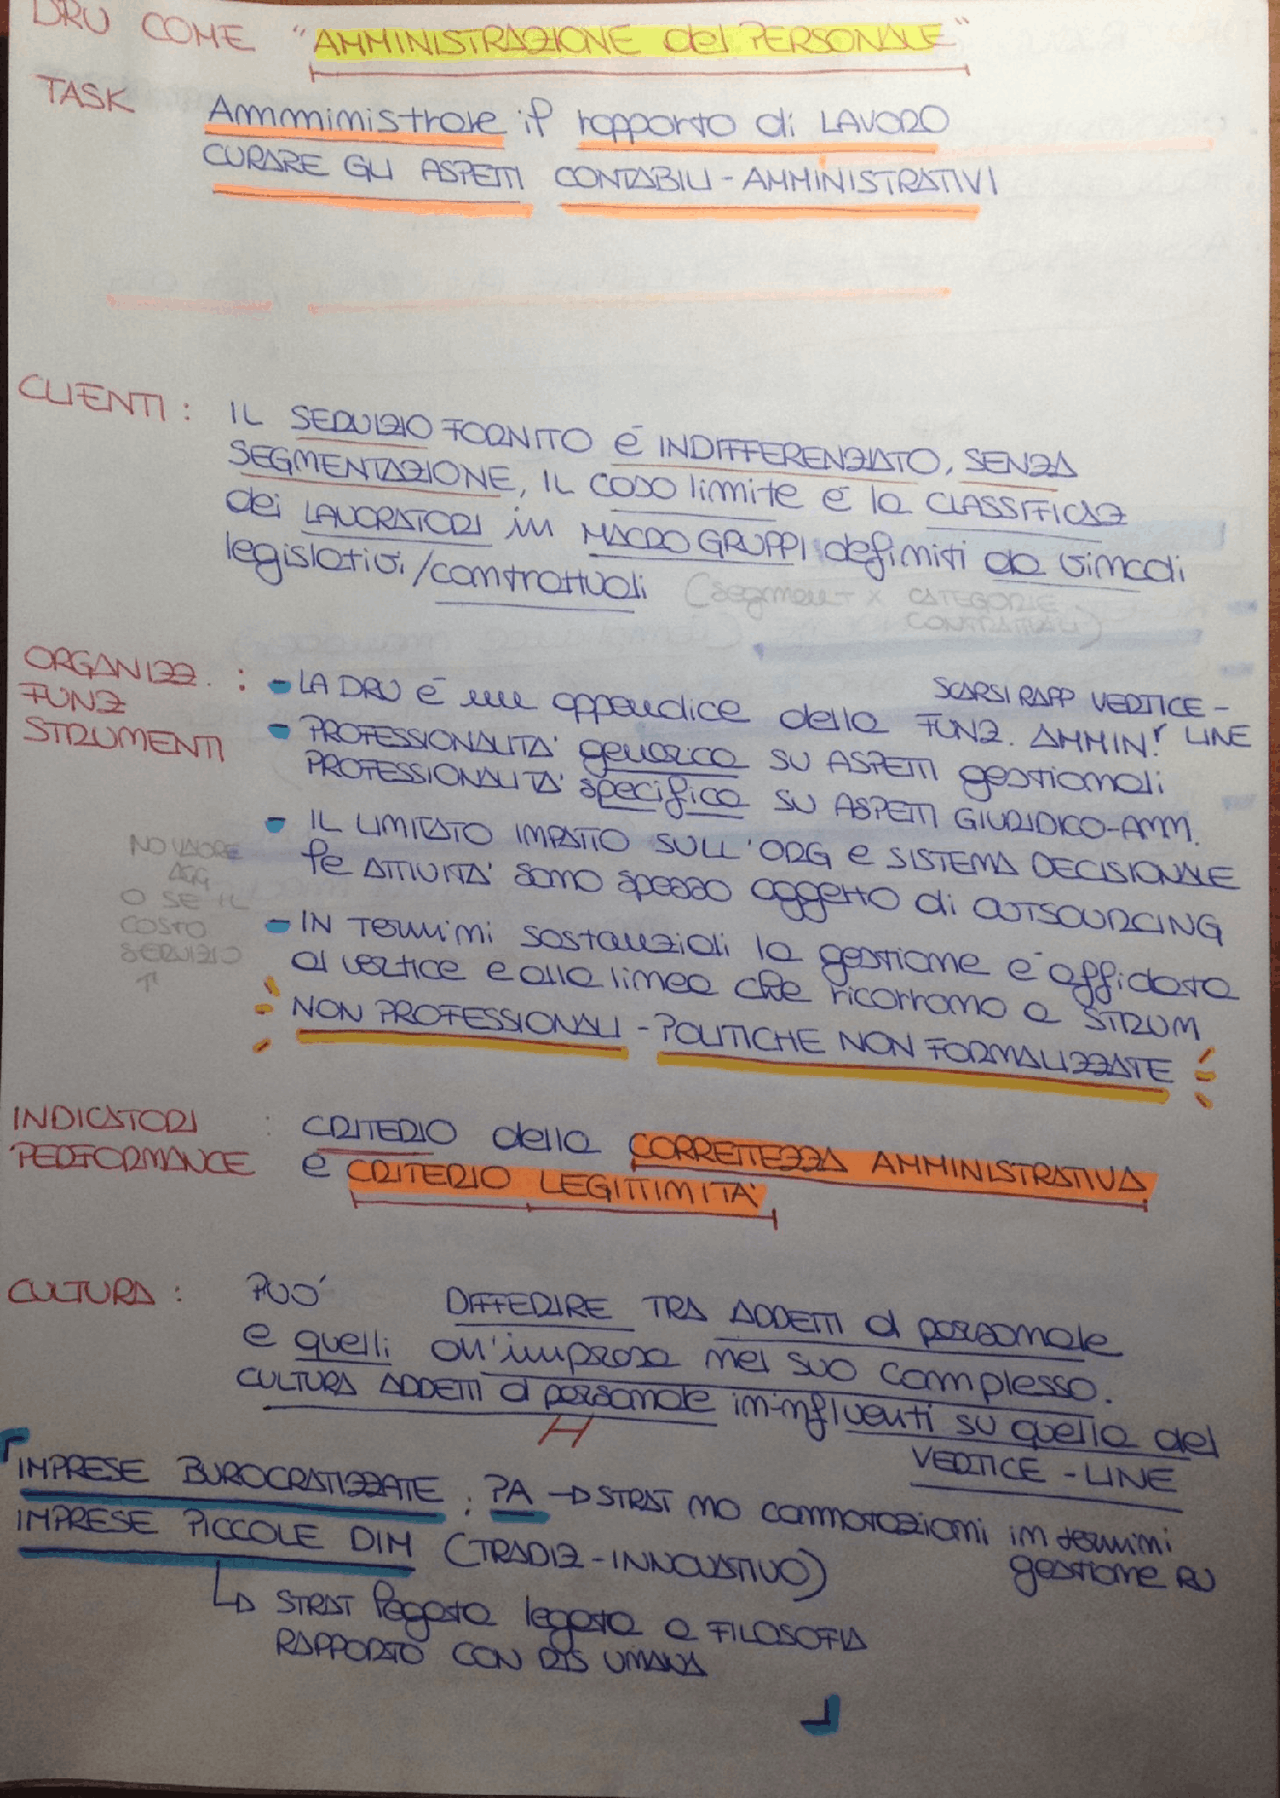 DRU COME "AMMINISTRAZIONE del PERSONALE"
TASK Amministrare il rapporto di LAVORO
CURARE GLI ASPETTI CONTABILI-AMMINISTRATIVI
CLIENTI: IL SERVIZIO FORNITO È INDIFFERENZIATO, SENZA
SEGMENTAZIONE, IL CASO limite è la CLASSIFICAZ
dei LAVORATORI in MACRO GRUPPI definiti da vincoli
legislativi/contrattuali (segment x CATEGORIE
CONTRATTUALI)
ORGANIZZ. : - LA DRU è un appendice della FUNZ. AMMIN!
SCARSI RAPP VERTICE-
LINE
FUNZ
STRUMENTI
- PROFESSIONALITA' generica SU ASPETTI gestionali
PROFESSIONALITA' specifica SU ASPETTI GIURIDICO-AMM.
- IL LIMITATO IMPATTO SULL'ORG e SISTEMA DECISIONALE
le ATTIVITA' sono spesso oggetto di OUTSOURCING
NO VALORE
AGG
O SE IL
COSTO
SERVIZIO
↑
- IN Termini sostanziali la gestione è affidata
al vertice e alla linea che ricorrono a STRUM
NON PROFESSIONALI - POLITICHE NON FORMALIZZATE
INDICATORI : CRITERIO della CORRETTEZZA AMMINISTRATIVA
PERFORMANCE e CRITERIO LEGITTIMITA'
CULTURA : PUO' DIFFERIRE TRA ADDETTI al personale
e quelli all'impresa nel suo complesso.
CULTURA ADDETTI al personale in-influenti su quella del
VERTICE-LINE
IMPRESE BUROCRATIZZATE, PA → STRAT no connotazioni in termini
gestione RU
IMPRESE PICCOLE DIM (TRADIZ-INNOVATIVO)
↳ STRAT legata a FILOSOFIA
RAPPORTO CON RIS UMANA